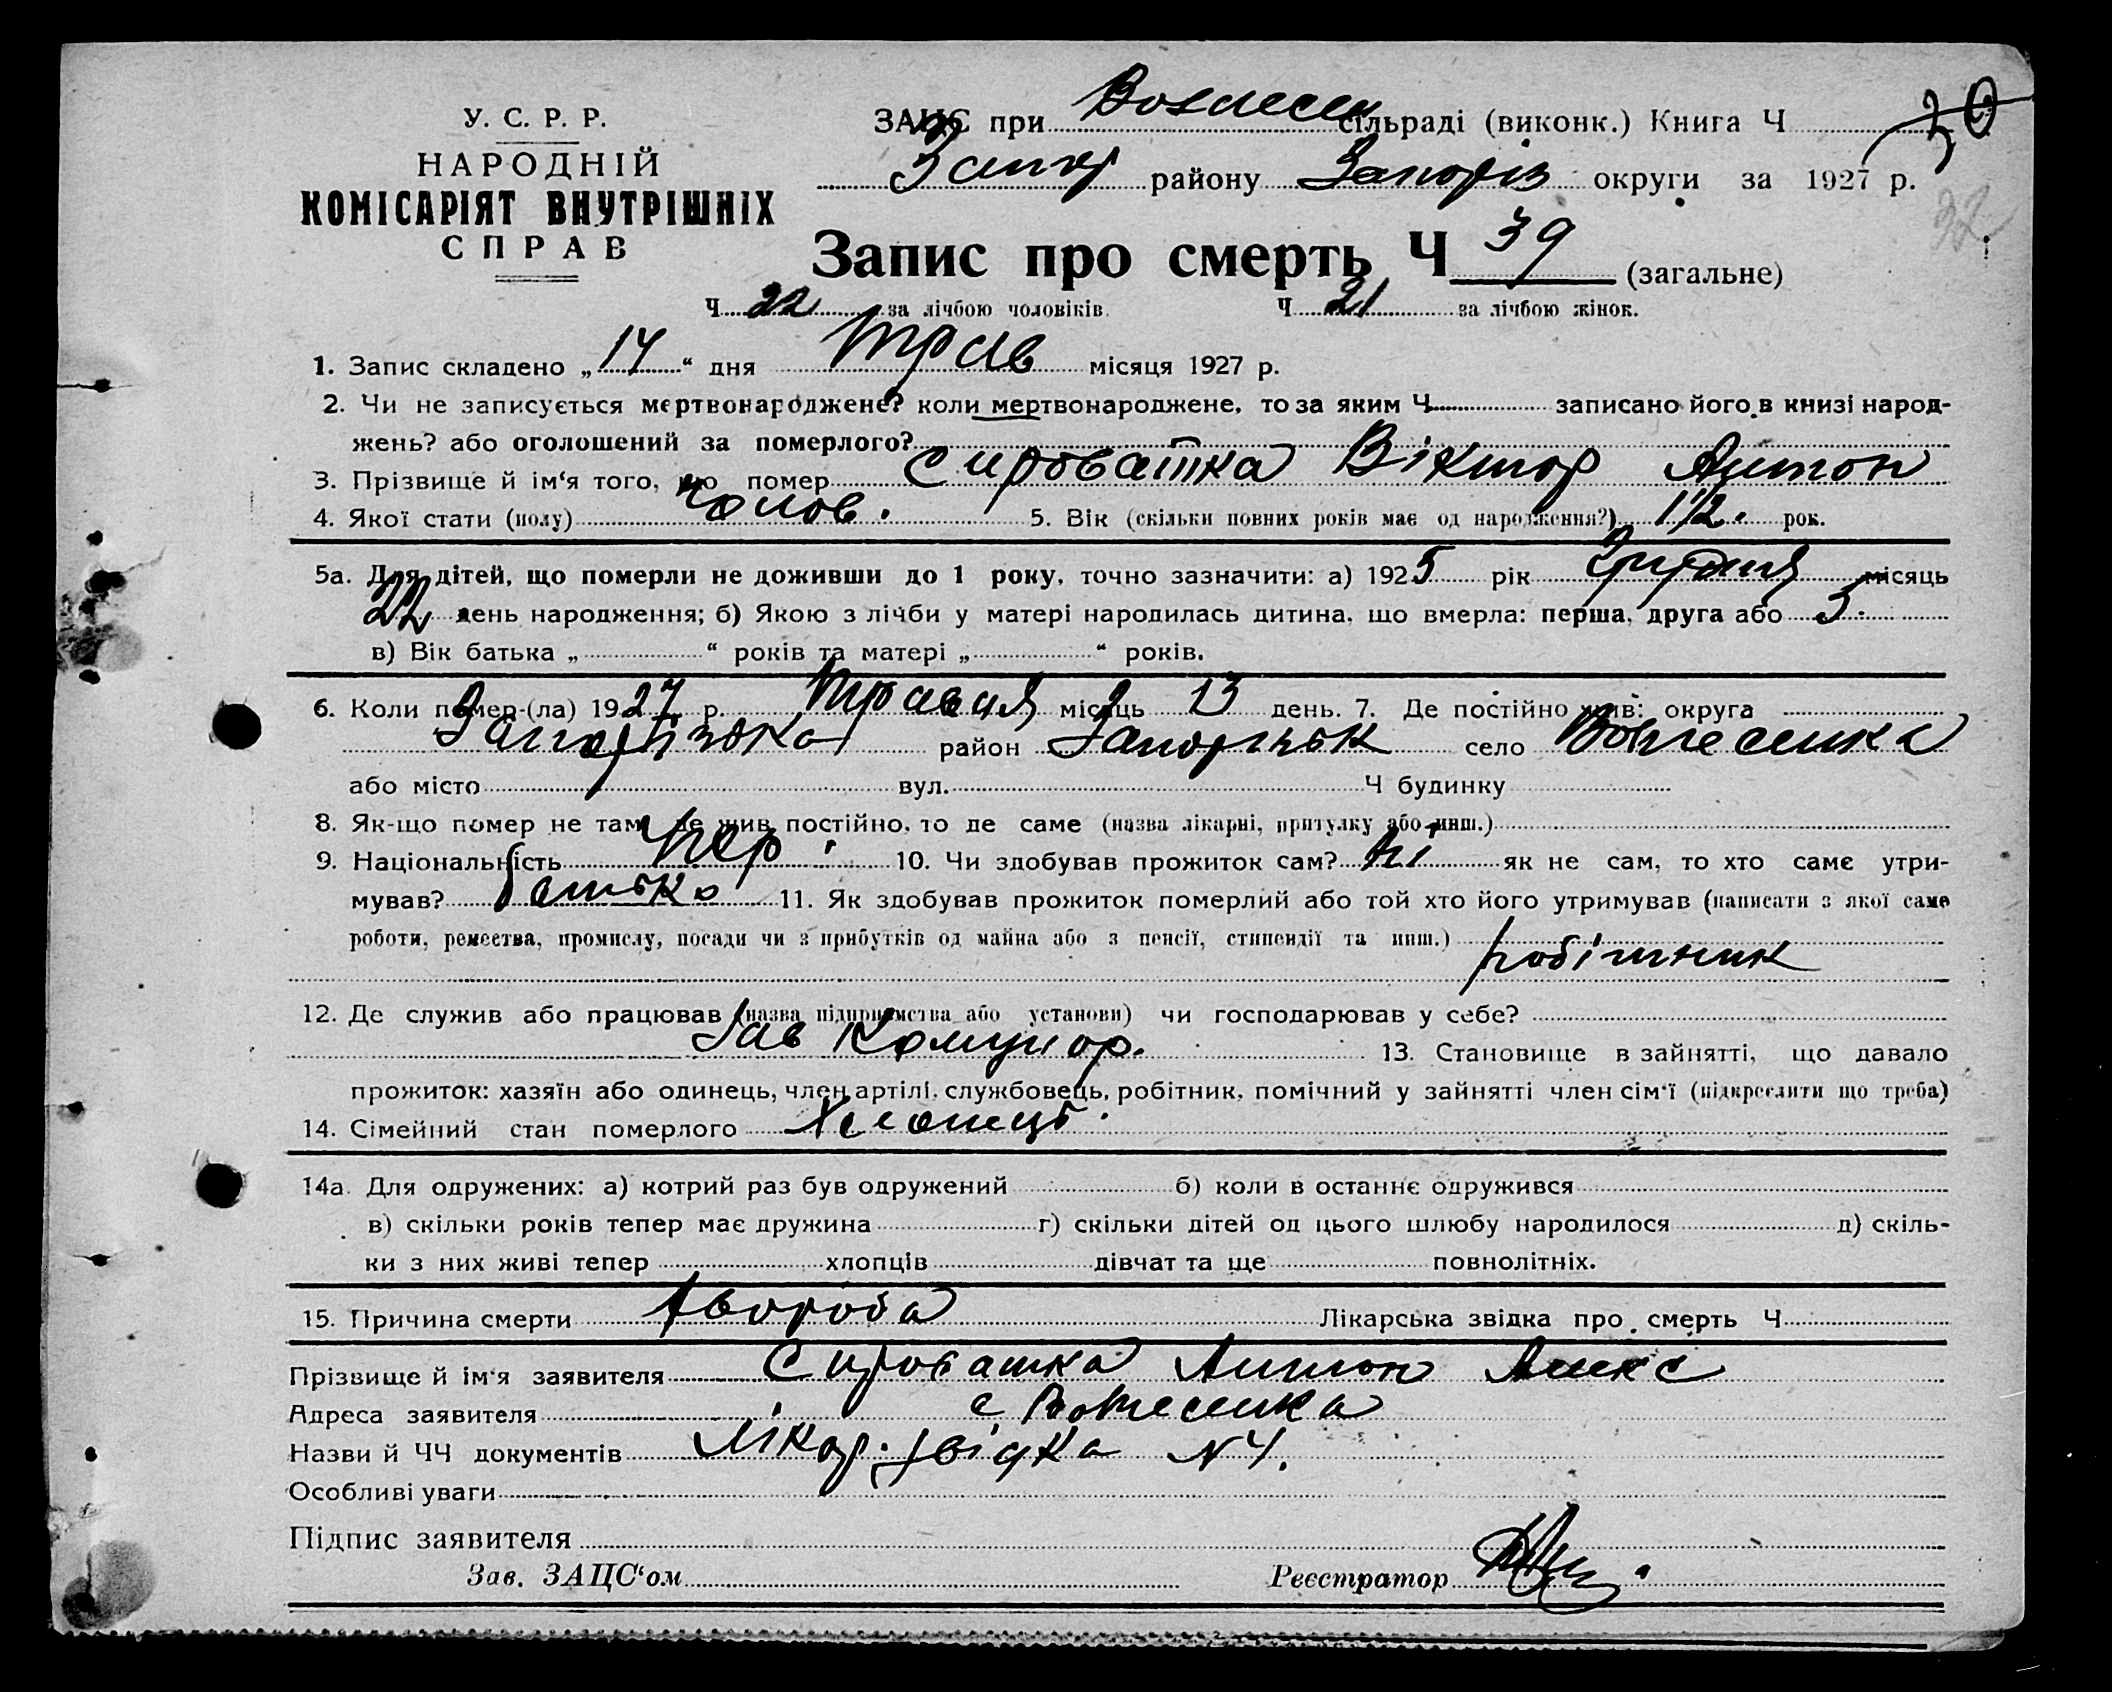 У. С. Р. Р.
НАРОДНІЙ
КОМІСАРІЯТ ВНУТРІШНІХ
СПРАВ
ЗАЦС при Вознесен сільраді (виконк.) Книга Ч 30
Запор району Запоріз округи за 1927 р.
32
Запис про смерть Ч 39 (загальне)
Ч 22 за лічбою чоловіків. Ч 21 за лічбою жінок.
1. Запис складено „14“ дня Трав місяця 1927 р.
2. Чи не записується мертвонароджене? коли мертвонароджене, то за яким Ч записано його в книзі народ-
жень? або оголошений за померлого?
3. Прізвище й ім‘я того, що помер Сироватка Віктор Антон
4. Якої стати (полу) чолов. 5. Вік (скільки повних років має од народження?) 1 1/2. рок.
5а. Для дітей, що померли не доживши до 1 року, точно зазначити: а) 1925 рік Грудня місяць
22 день народження; б) Якою з лічби у матері народилась дитина, що вмерла: перша, друга або 3.
в) Вік батька „ “ років та матері „ “ років.
6. Коли помер-(ла) 1927 р. Травня місяць 13 день. 7. Де постійно жив: округа
Запорізька район Запорізьк село Вознесенка
або місто вул. Ч будинку
8. Як-що помер не там, де жив постійно, то де саме (назва лікарні, притулку або инш.)
9. Національність Укр. 10. Чи здобував прожиток сам? ні як не сам, то хто саме утри-
мував? батько 11. Як здобував прожиток померлий або той хто його утримував (написати з якої саме
роботи, ремества, промислу, посади чи з прибутків од майна або з пенсії, стипендії та инш.)
робітник
12. Де служив або працював (назва підприємства або установи) чи господарював у себе?
Зав Комунар. 13. Становище в зайнятті, що давало
прожиток: хазяїн або одинець, член артілі, службовець, робітник, помічний у зайнятті член сім‘ї (підкреслити що треба)
14. Сімейний стан померлого Хлопець.
14а. Для одружених: а) котрий раз був одружений б) коли в останнє одружився
в) скільки років тепер має дружина г) скільки дітей од цього шлюбу народилося д) скіль-
ки з них живі тепер хлопців дівчат та ще повнолітніх.
15. Причина смерти Хвороба Лікарська звідка про смерть Ч
Прізвище й ім‘я заявителя Сироватка Антон Алекс
Адреса заявителя с Вознесенка
Назви й ЧЧ документів Лікар. звідка N 4.
Особливі уваги
Підпис заявителя
Зав. ЗАЦС‘ом Реєстратор